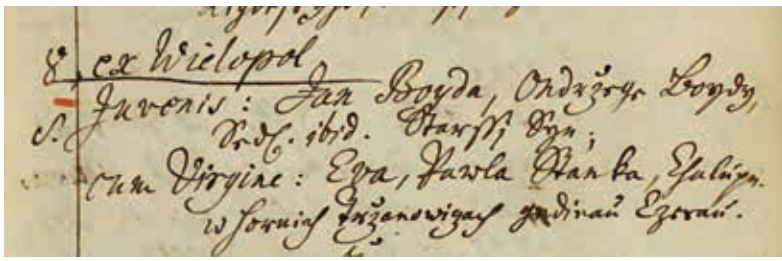 8. ex Wielopol
Juvenis: Jan Boyda, Ondržege Boydy,
S. Sedl. ibid. Starssj Syn;
cum Virgine: Eva, Pawla Stanka, Chalupn.
w Hornich Tržanowigach gedinau Czerau.